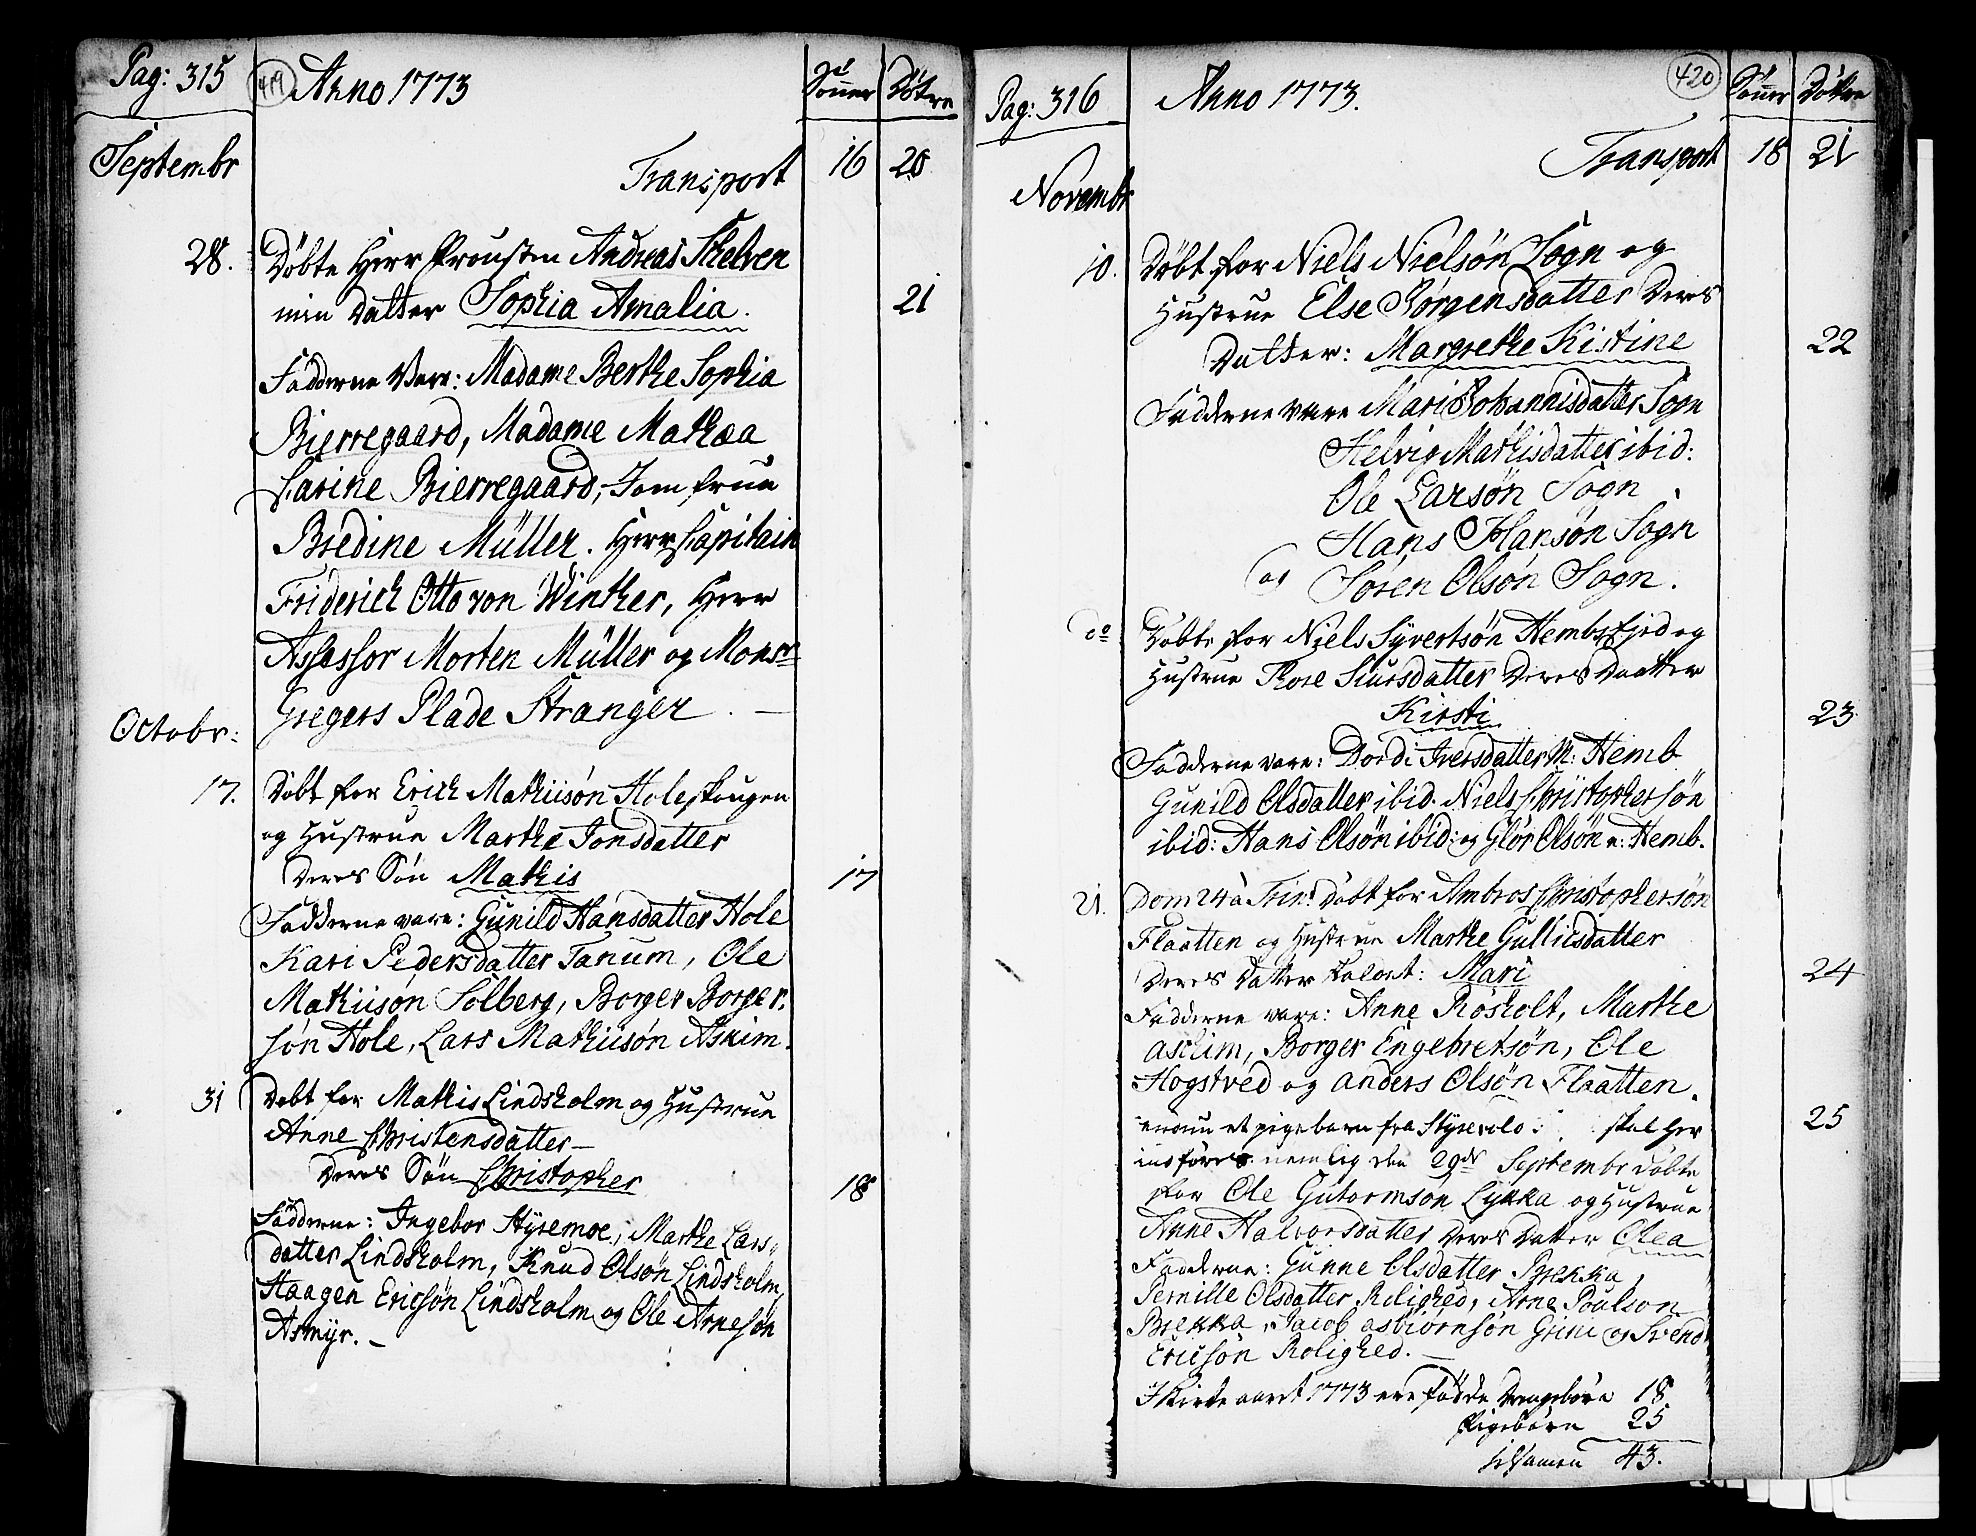 Pag: 315
419
Anno 1773
Sönner
Döttre
Septembr
Transport
16
20
28.
Döbte Herr Prousten Andreas Skelven
min Datter Sophia Amalia.
21
Fadderne Vare: Madame Berthe Sophia
Bierregaard, Madame Mathæa
Carine Bierregaard, Jomfrue
Bredine Müller. Herr Capitain
Friderich Otto von Winther, Herr
Assessor Morten Müller og Monsr
Gregers Plade Stranger. —
Octobr:
17.
Döbt for Erich Mathiisön Holeskougen
og Hustrue Marthe Jonsdatter
Deres Sön Mathis
17
Fadderne vare: Gunild Hansdatter Hole
Kari Pedersdatter Tanum, Ole
Mathiisön Solberg, Borger Borger:
sön Hole, Lars Mathiisön Askim.
31
Döbt for Mathis Lindsholm og Hustrue
Anne Christensdatter —
Deres Sön Christopher
18
Fadderne: Ingebor Styremoe, Marthe Lars:
datter Lindsholm, Knud Olsön Lindsholm,
Haagen Ericsön Lindsholm og Ole Arnesön
Asmyr. —
Pag: 316
Anno 1773.
420
Sönner
Döttre
Transport
18
21
Novembr
10.
Döbt for Niels Nielsön Sogn og
Hustrue Else Jörgensdatter Deres
Datter: Margrethe Kistine
22
Fadderne vare Mari Johannisdatter Sogn
Helvig Mathisdatter ibid:
Ole Larsön Sogn
Hans Hansön Sogn
og Sören Olsön Sogn.
do
Döbte for Niels Syvertsön Hembsejed og
Hustrue Thore Siursdatter Deres Daatter
Kirsti
23
Fadderne vare: Dordi Iversdatter M: Hemb
Gunild Olsdatter ibid. Niels Christophersön
ibid: Hans Olsön ibid: og Glör Olsön n: Hemb.
21.
Dom 24 à Trin: Döbt for Ambros Christophersön
Flaatten og Hustrue Marthe Gulliksdatter
Deres Datter kaldet: Mari
24
Fadderne vare: Anne Rösholt, Marthe
Askim, Borger Engebretsön, Ole
Hogstved og Anders Olsön Flaatten.
endnu et pigebarn fra Styrevold: skal her
25
indföres nemlig den 29de Septembr döbte
for Ole Gutormsön Lykka og Hustrue
Anne Halvorsdatter Deres Datter Olea
Fadderne: Gunne Olsdatter Brekka,
Pernille Olsdatter Rolighed, Arne Poulson
Brekka, Jacob Asbiörnsön Grini og Svend
Ericsön Rolighed. —
I Kirke aaret 1773 ere fødde Drengebörn 18
Pigebörn 25
tilsamen 43.